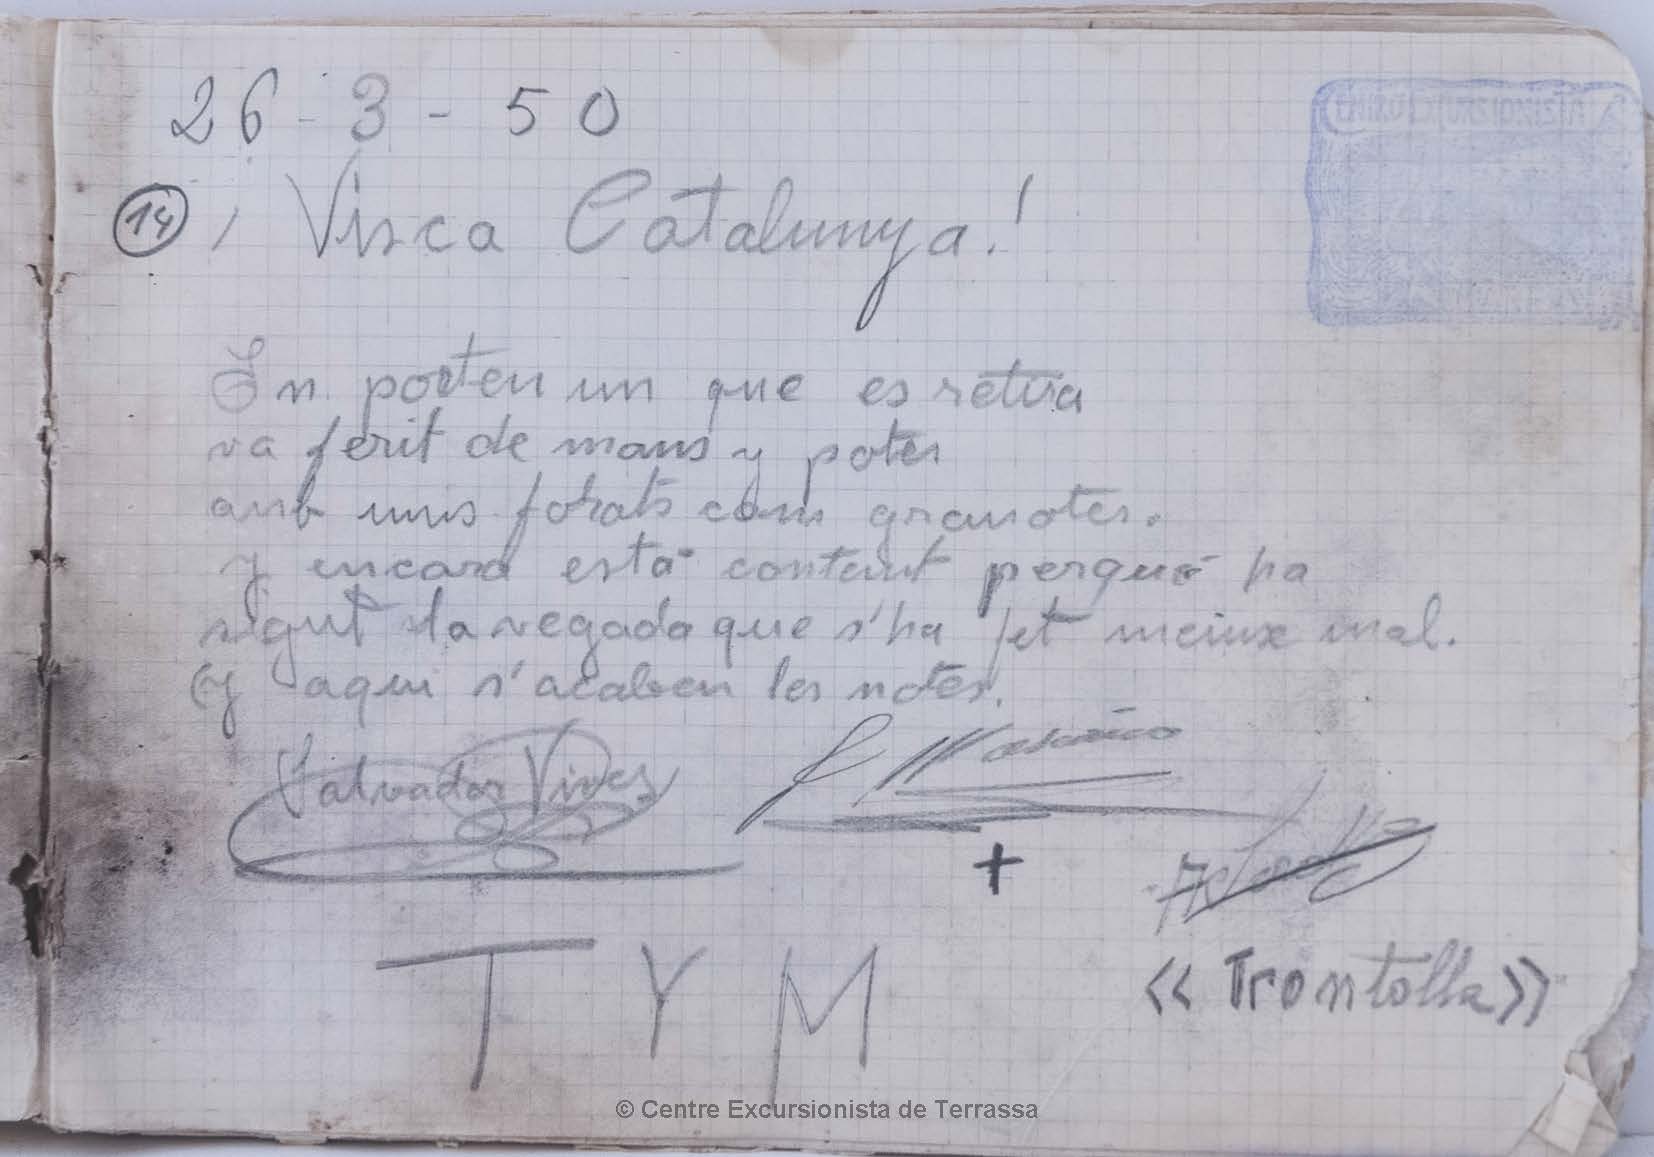 26-3-50
14 ¡Visca Catalunya!
En porten un que es retira
va ferit de mans y potes
amb unis forats com granotes.
Y encara està content perquè ha
sigut la vegada que s'ha fet meinx mal.
(Y aqui s'acaben les notes.
Salvador Vives
+
T Y M
<< Trontolla >>
© Centre Excursionista de Terrassa